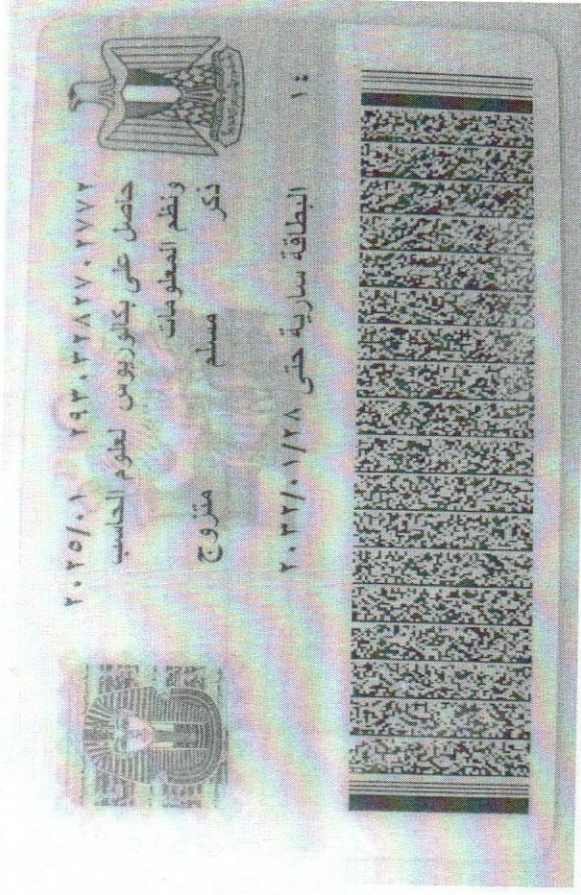 ٢٩٣٠٣٢٨٢٧٠٢٧٧٢ ٢٠٢٥/٠١
حاصل على بكالوريوس لعلوم الحاسب
ونظم المعلومات
ذكر مسلم متزوج
البطاقة سارية حتى ٢٠٣٢/٠١/٢٨
١٤